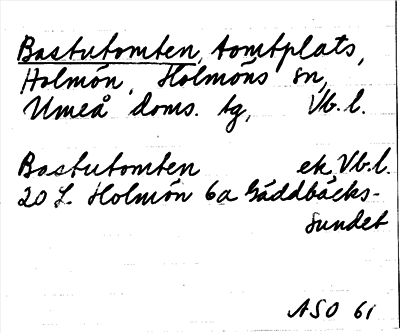 Bastutomten, tomtplats,
Holmön, Holmöns sn,
Umeå doms. tg, Vb.l.
Bastutomten ek, Vb.l.
20 L. Holmön 6a Gäddbäcks-
sundet
ASO 61